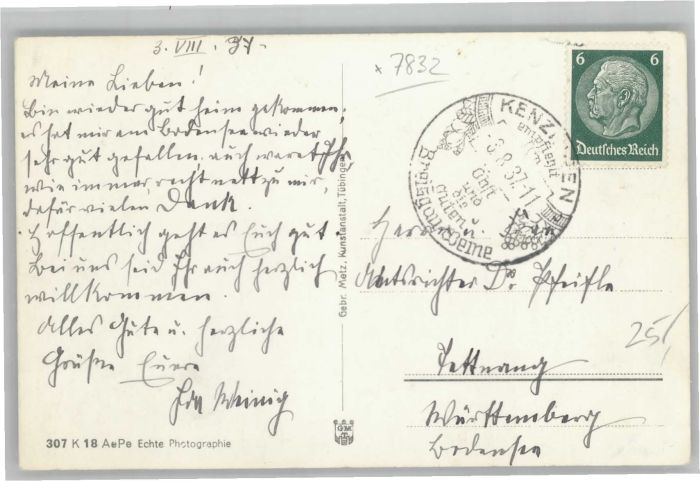 3. VIII. 37.
Meine Lieben!
Bin wieder gut heim gekommen,
es hat mir am Bodensee wieder
sehr gut gefallen. auch waret Ihr
wie immer, recht nett zu mir,
dafür vielen Dank.
Hoffentlich geht es Euch gut
Bei uns seid Ihr auch herzlich
willkommen.
Alles Gute u. herzliche
Grüße Euere
Ida Weinig
307 K 18 AePe Echte Photographie
Gebr. Metz, Kunstanstalt, Tübingen
GMT
x 7832
KENZINGEN
Breisgau
empfiehlt
3.8.37.11
Gast
und
die
guten
6 6
Deutsches Reich
Herrn
Amtsrichter Dr Pfeifle
Tettnang
Württemberg
Bodensee
25/